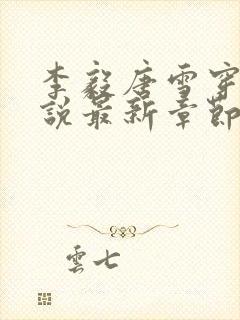 李毅唐雪穿
說最新章節
雲七